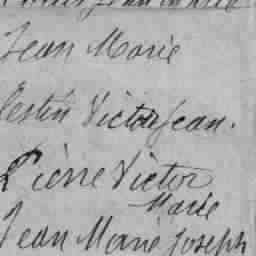 Jean Marie
lestin Victor Jean.
Pierre Victor
Marie
Jean Marie Joseph